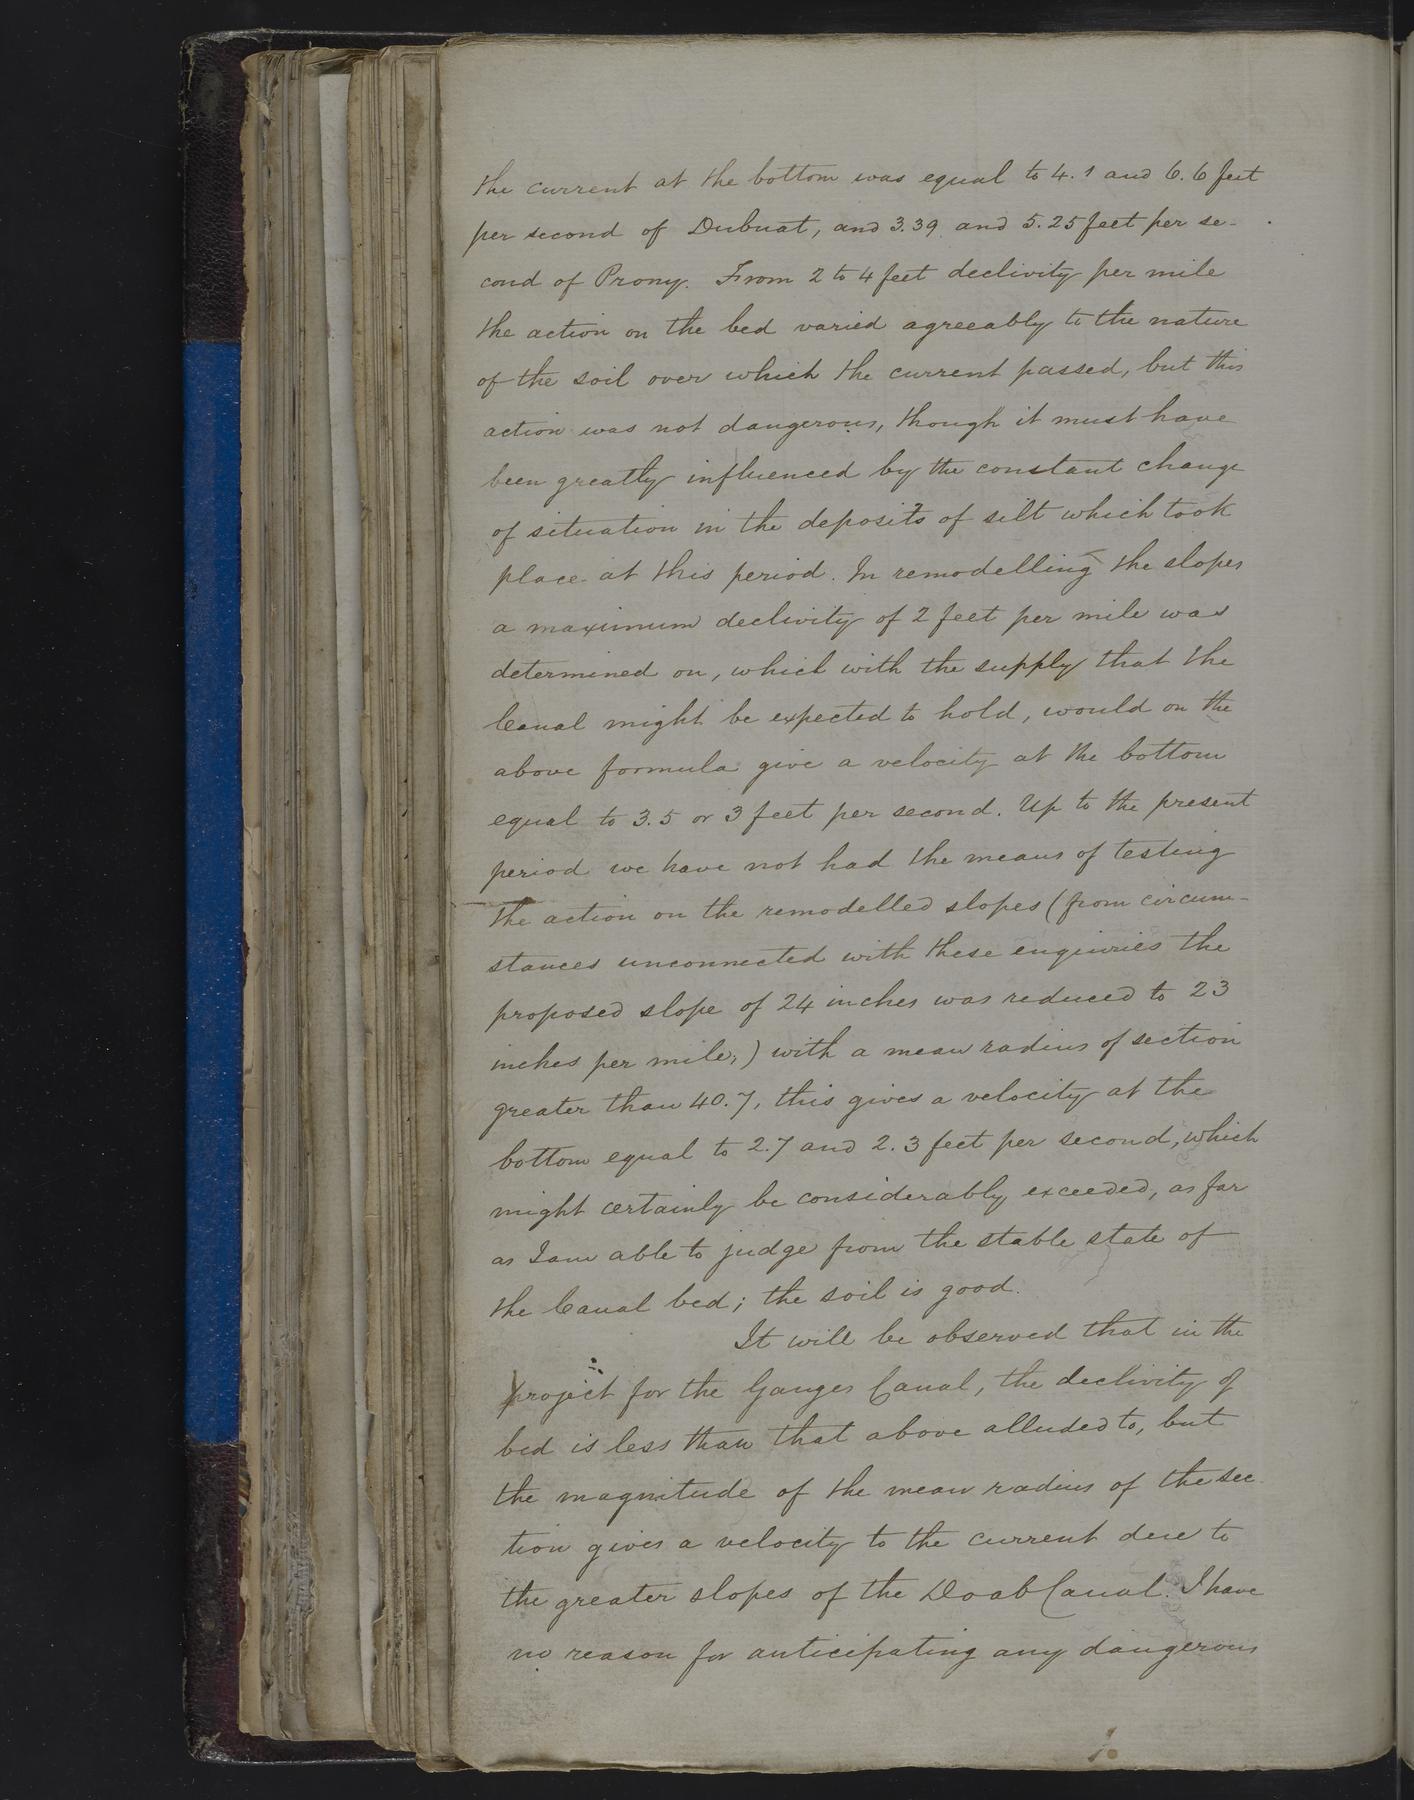 the current at the bottom was equal to 4.1 and 6.6 feet
per second of Dubuat, and 3.39 and 5.25 feet per se-
cond of Prony. From 2 to 4 feet declivity per mile
the action on the bed varied agreeably to the nature
of the soil over which the current passed, but this
action was not dangerous, though it must have
been greatly influenced by the constant change
of situation in the deposits of silt which took
place at this period. In remodelling the slopes
a maximum declivity of 2 feet per mile was
determined on, which with the supply that the
Canal might be expected to hold, would on the
above formula give a velocity at the bottom
equal to 3.5 or 3 feet per second. Up to the present
period we have not had the means of testing
the action on the remodelled slopes (from circum-
stances unconnected with these enquiries the
proposed slope of 24 inches was reduced to 23
inches per mile;) with a mean radius of section
greater than 40.7, this gives a velocity at the
bottom equal to 2.7 and 2.3 feet per second, which
might certainly be considerably exceeded, as far
as I am able to judge from the stable state of
the Canal bed; the soil is good.
It will be observed that in the
project for the Ganges Canal, the declivity of
bed is less than that above alluded to, but
the magnitude of the mean radius of the sec
tion gives a velocity to the current due to
the greater slopes of the Doab Canal. I have
no reason for anticipating any dangerous